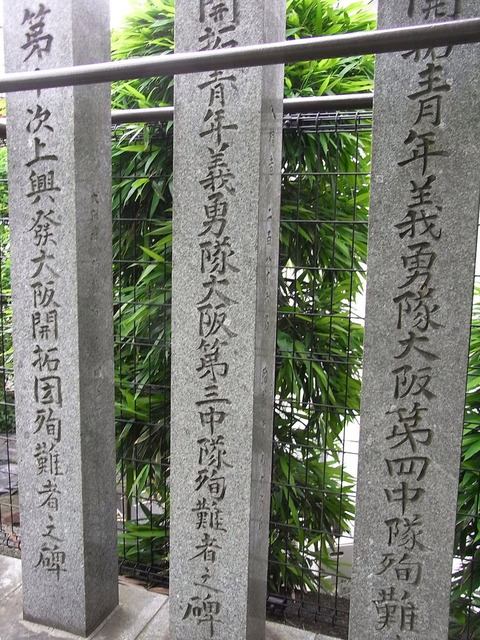 開拓青年義勇隊大阪第四中隊殉難
開拓青年義勇隊大阪第三中隊殉難者之碑
第十次上興發大阪開拓団殉難者之碑